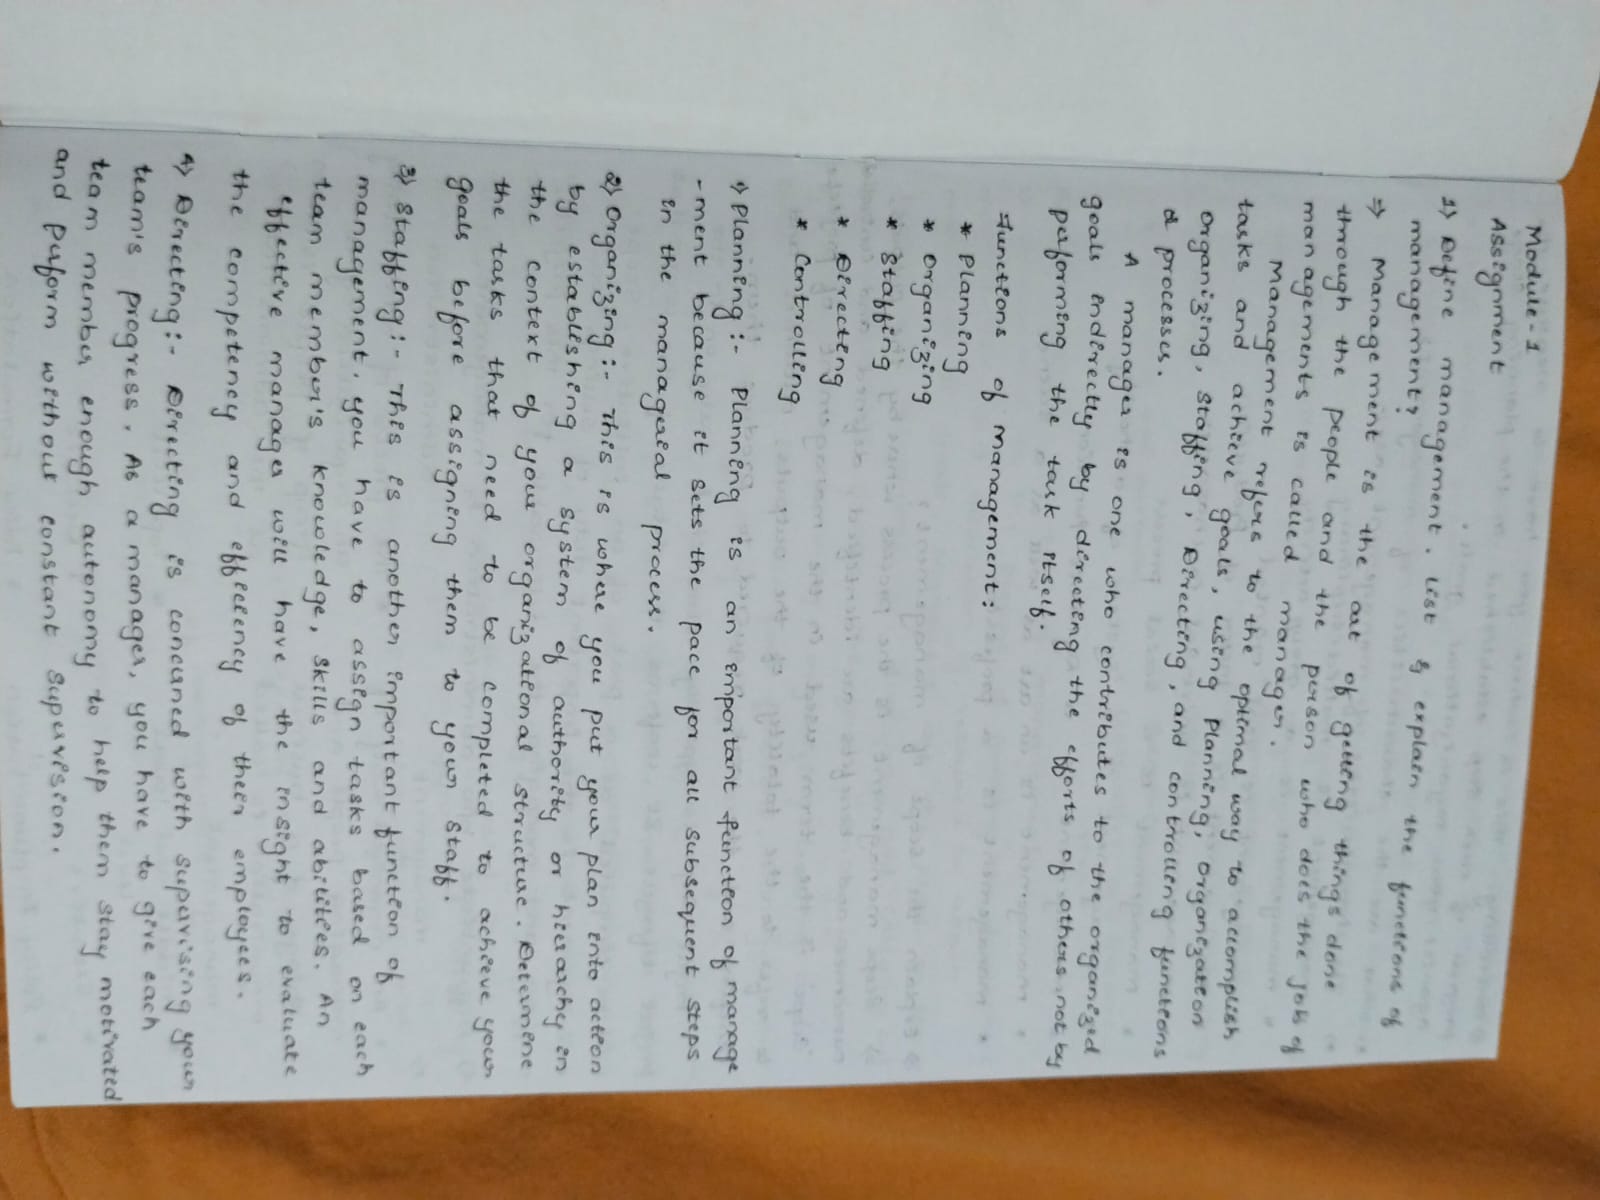 Module - 1
Assignment
1) Define management. List & explain the functions of
management?
⇒ Management is the art of getting things done
through the people and the person who does the job of
managements is called manager.
Management refers to the optimal way to accomplish
tasks and achieve goals, using Planning, Organization
Organizing, Staffing, Directing, and controlling functions
& processes.
A manager is one who contributes to the organized
goals indirectly by directing the efforts of others not by
performing the task itself.
Functions of management:
* Planning
* Organizing
* Staffing
* Directing
* Controlling
1) Planning :- Planning is an important function of manage
-ment because it sets the pace for all subsequent steps
in the managerial process.
2) Organizing :- This is where you put your plan into action
by establishing a system of authority or hierarchy in
the context of your organizational structure. Determine
the tasks that need to be completed to achieve your
goals before assigning them to your staff.
3) Staffing :- This is another important function of
management. you have to assign tasks based on each
team member's knowledge, skills and abilities. An
effective manager will have the insight to evaluate
the competency and efficiency of their employees.
4) Directing :- Directing is concerned with supervising your
team's progress. As a manager, you have to give each
team member enough autonomy to help them stay motivated
and perform without constant supervision.